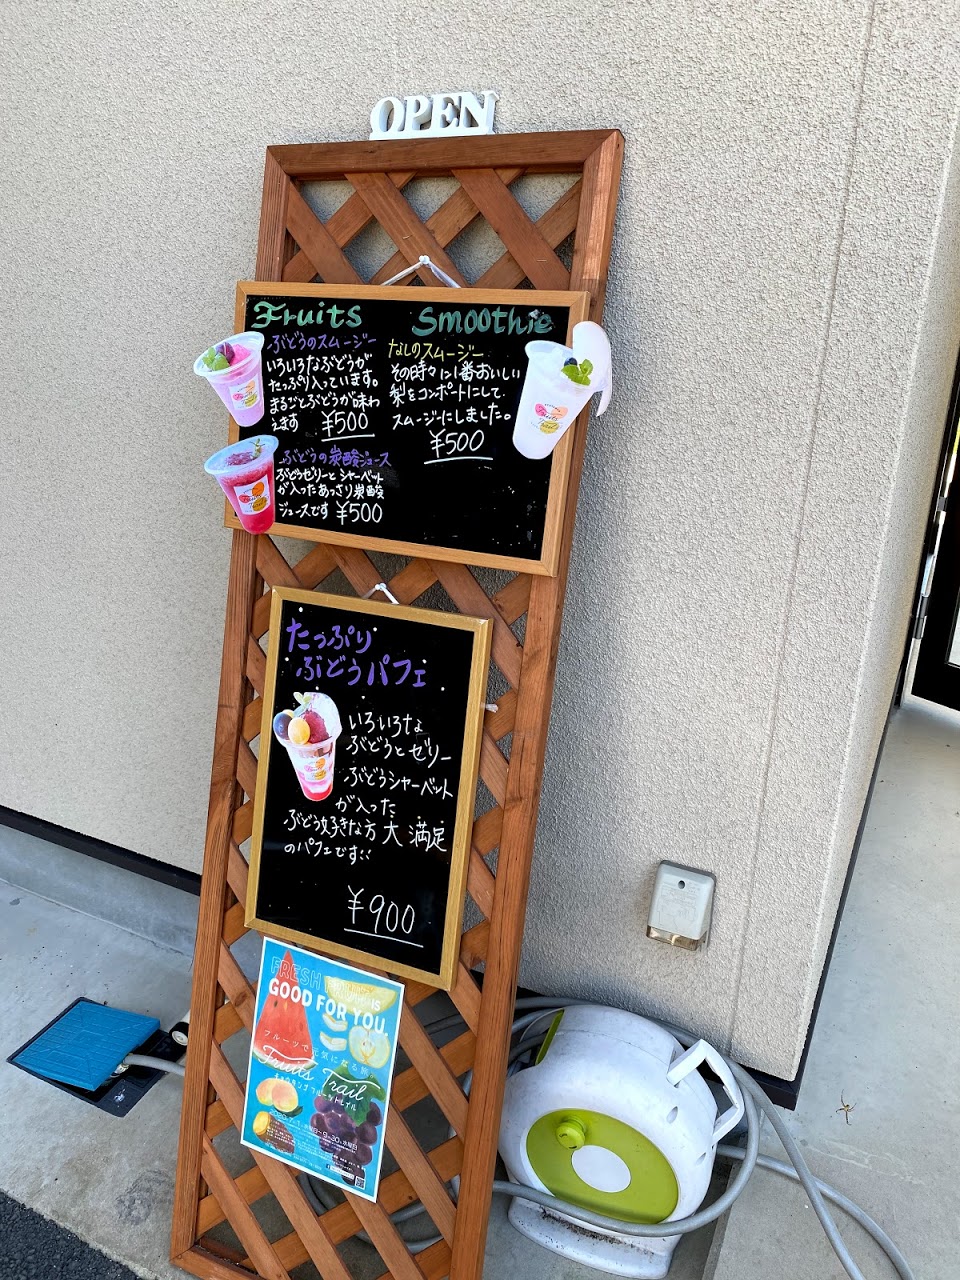 OPEN
Fruits Smoothie
ぶどうのスムージー
いろいろなぶどうが
たっぷり入っています。
まるごとぶどうが味わ
えます ¥500
なしのスムージー
その時々に1番おいしい
梨をコンポートにして
スムージーにしました。
¥500
ぶどうの炭酸ジュース
ぶどうゼリーとシャーベット
が入ったあっさり炭酸
ジュースです ¥500
たっぷり
ぶどうパフェ
いろいろな
ぶどうとゼリー
ぶどうシャーベット
が入った
ぶどう好きな方大満足
のパフェです!!
¥900
FRESH
IS
GOOD FOR YOU.
フルーツで元気になる旅
Fruits Trail
フルーツトレイル